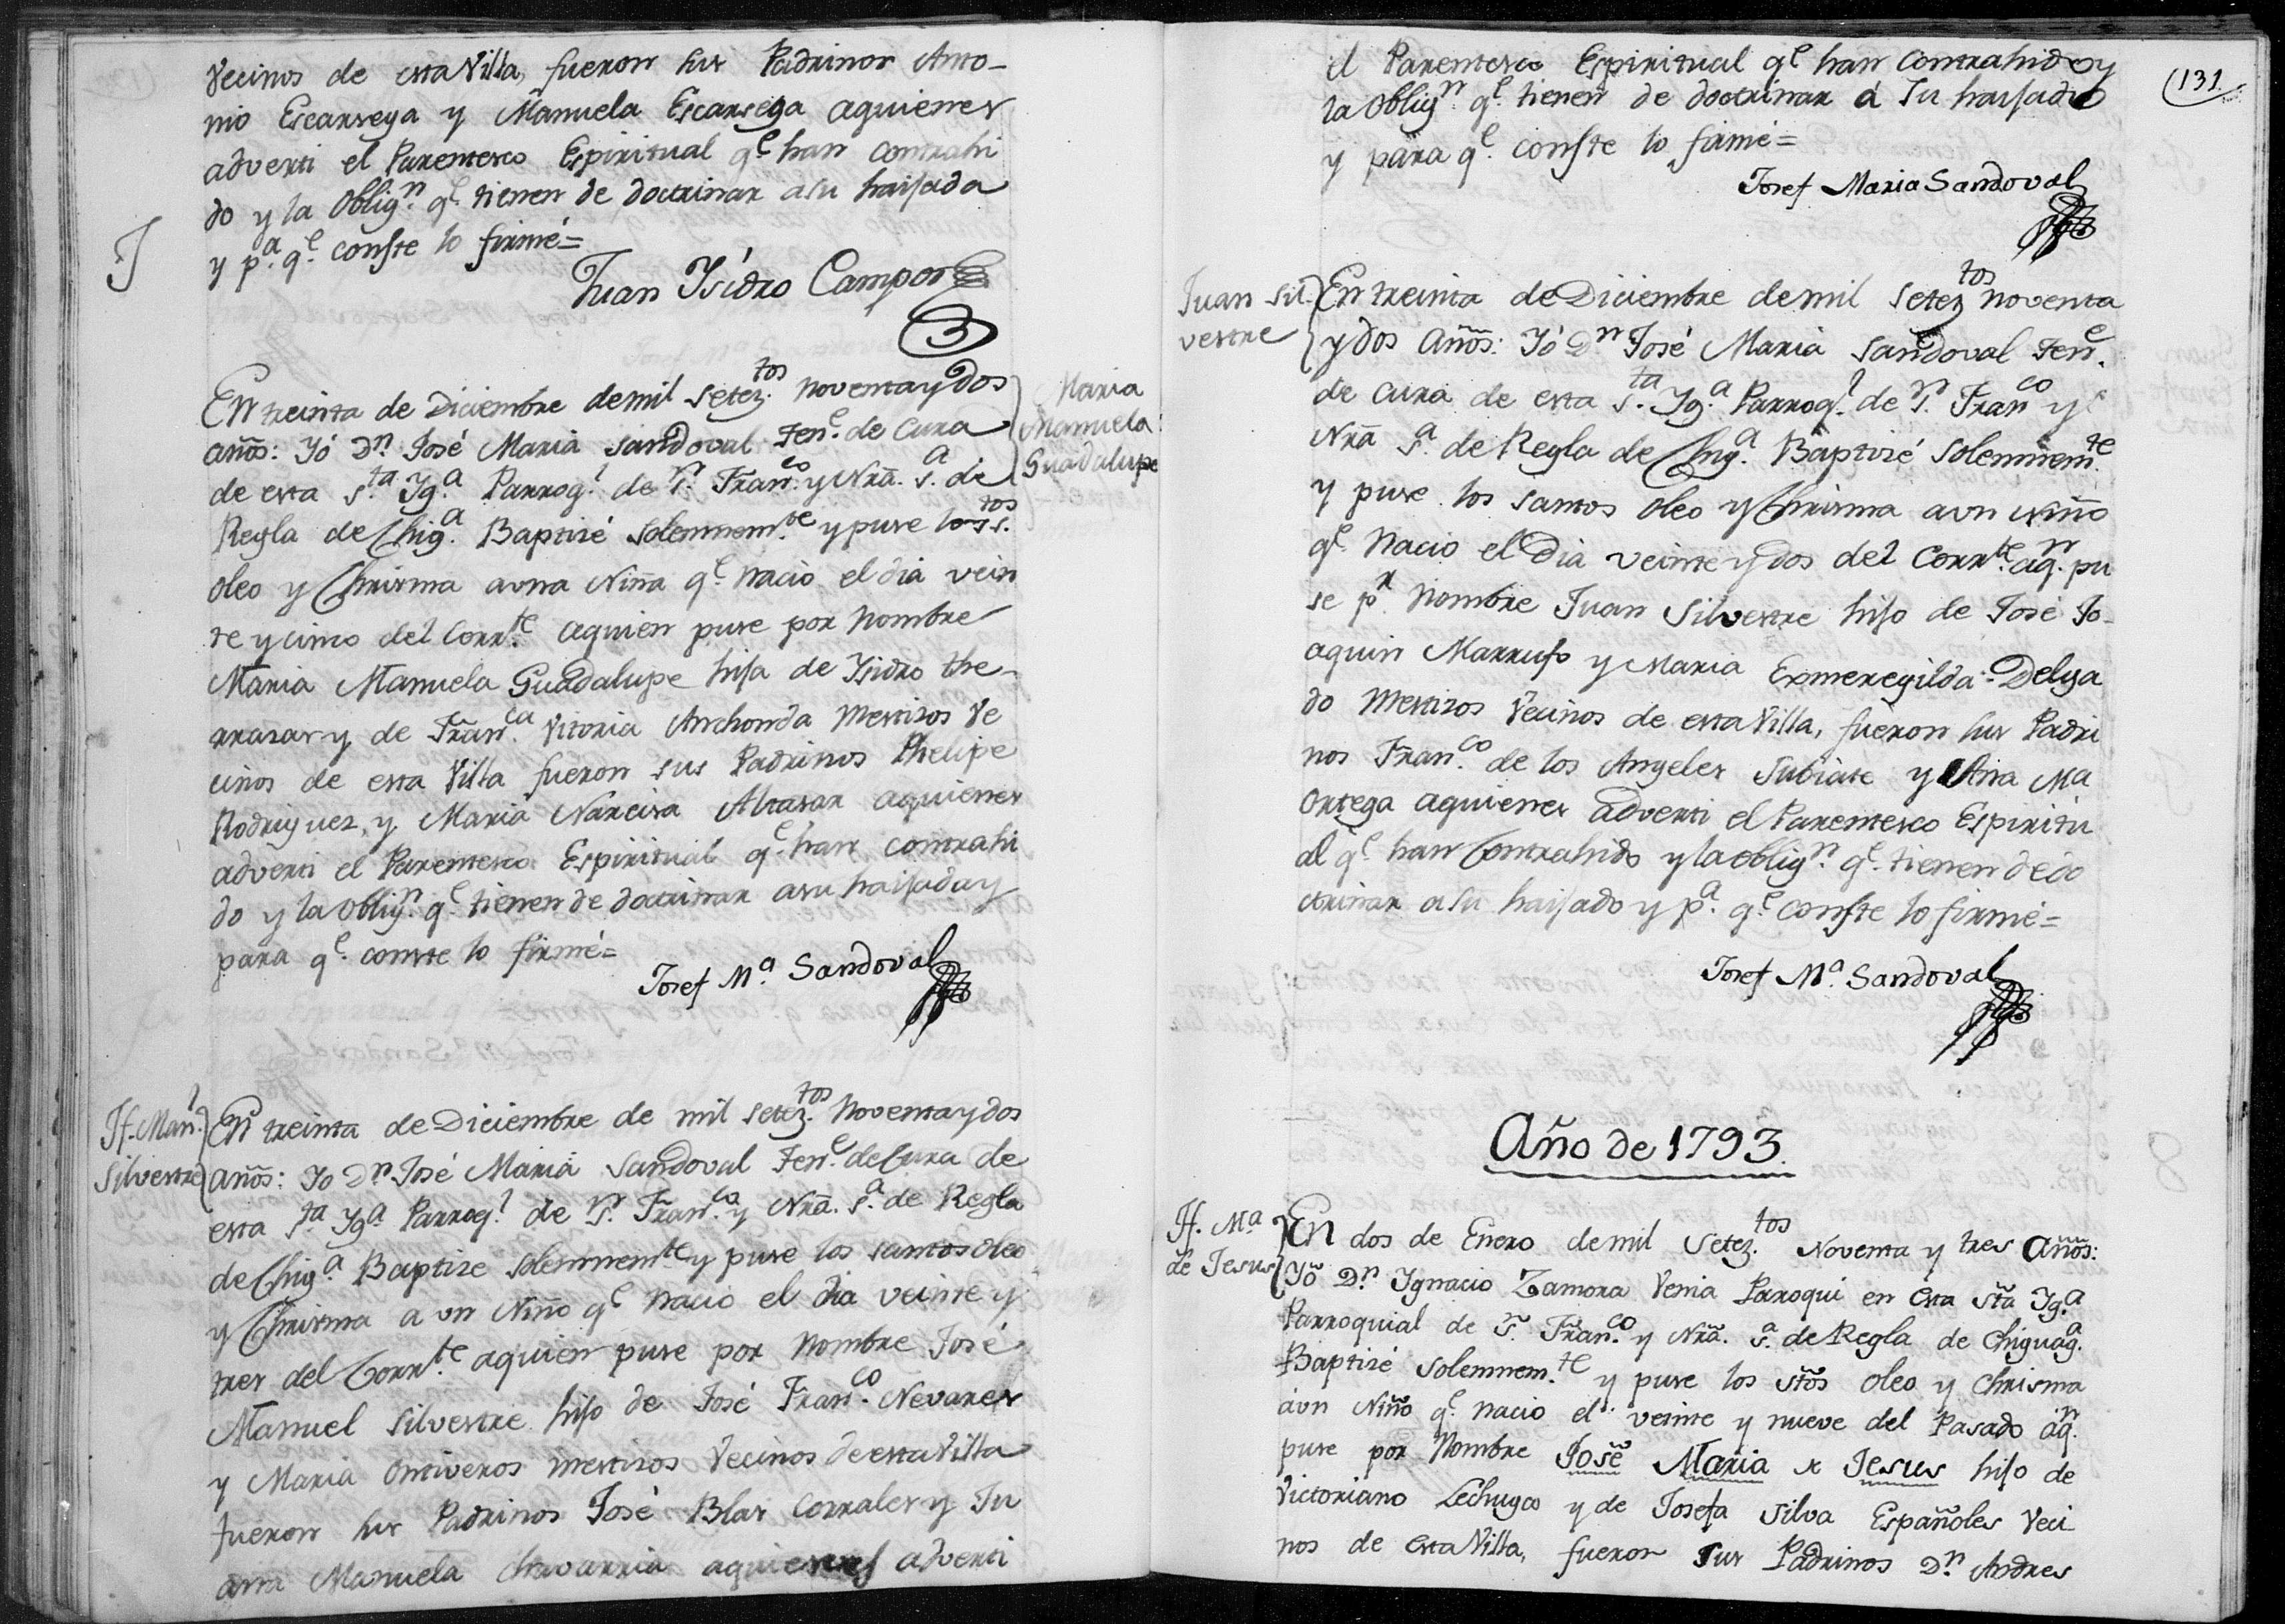 Vecinos de esta Villa, fueron sus Padrinos Anto-
nio Escarsega y Manuela Escarsega aquienes
adverti el Parentesco Espiritual q.e han contrahi
do y la Oblig.n q.e tienen de doctrinar a su haijada
y p.a q.e conste lo firmé=
Juan Ysidro Campos
Maria
Manuela
Guadalupe
En treinta de Diciembre de mil setez.tos noventa y dos
años: Yó D.n José Maria Sandoval Ten.e de Cura
de esta S.ta Yg.a Parroq.l de S.n Fran.co y Nrã. S.a de
Regla de Chig.a Baptisé Solemnem.te y puse los S.tos
oleo y Chrisma a una Niña q.e nació el dia vein
te y cinco del Corr.te aquien puse por nombre
Maria Manuela Guadalupe hija de Ysidro the-
rrasas y de Fran.ca Vitoria Anchonda Mestisos Ve
cinos de esta Villa fueron sus Padrinos Phelipe
Rodriguez, y Maria Narcisa Alcasar aquienes
adverti el Parentesco Espiritual q.e han contrahi
do y la Oblig.n q.e tienen de doctrinar a su haijada y
para q.e conste lo firmé=
Josef M.a Sandoval
Jf. Man.l
Silvestre
En treinta de Diciembre de mil setez.tos Noventa y dos
años: Yo D.n José Maria Sandoval Ten.e de Cura de
esta S.ta Yg.a Parroq.l de S.n Fran.co y Nrã. S.a de Regla
de Chig.a Baptise Solemnem.te y puse los santos oleo
y Chrisma a un Niño q.e nacio el dia veinte y
tres del Corr.te aquien puse por Nombre José
Manuel Silvestre hijo de José Fran.co Nevares
y Maria Ontiveros mestisos Vecinos de esta Villa
fueron sus Padrinos José Blas Corrales y Ju
ana Manuela Chavarria aquienes adverti
131
el Parentesco Espiritual q.e han Contrahido y
la Oblig.n q.e tienen de doctrinar a su haijado
y para q.e conste lo firmé=
Josef Maria Sandoval
Juan Sil-
vestre
En treinta de Diciembre de mil setez.tos noventa
y dos años: Yó D.n José Maria Sandoval Ten.e
de Cura de esta S.ta Yg.a Parroq.l de S.n Fran.co y
Nrã S.a de Regla de Chig.a Baptisé Solemnem.te
y puse los santos oleo y Chrisma a un Niño
q.e Nacio el Dia veinte y dos del Corr.te aq.n pu
se p.r Nombre Juan Silvestre hijo de José Jo-
aquin Marrufo y Maria Ermeregilda Delga
do Mestizos Vecinos de esta Villa, fueron sus Padri
nos Fran.co de los Angeles Subiate y Ana Ma
Ortega aquienes adverti el Parentesco Espiritu
al q.e han Contrahido y la oblig.n q.e tienen de do
ctrinar a su haijado y p.a q.e conste lo firmé=
Josef M.a Sandoval
Año de 1793.
Jf. M.a
de Jesus
En dos de Enero de mil Setez.tos Noventa y tres Años:
Yo D.n Ygnacio Zamora Venia Parroqui en esta Stã Yg.a
Parroquial de S.n Fran.co y Nrã. S.a de Regla de Chiguag.a
Baptisé Solemnem.te y puse los Stõs oleo y Chrisma
a un Niño q.e nacio el veinte y nueve del Pasado áq.n
puse por Nombre José Maria de Jesus hijo de
Victoriano Lechuga y de Josefa Silva Españoles Veci
nos de esta Villa, fueron sus Padrinos D.n Andres